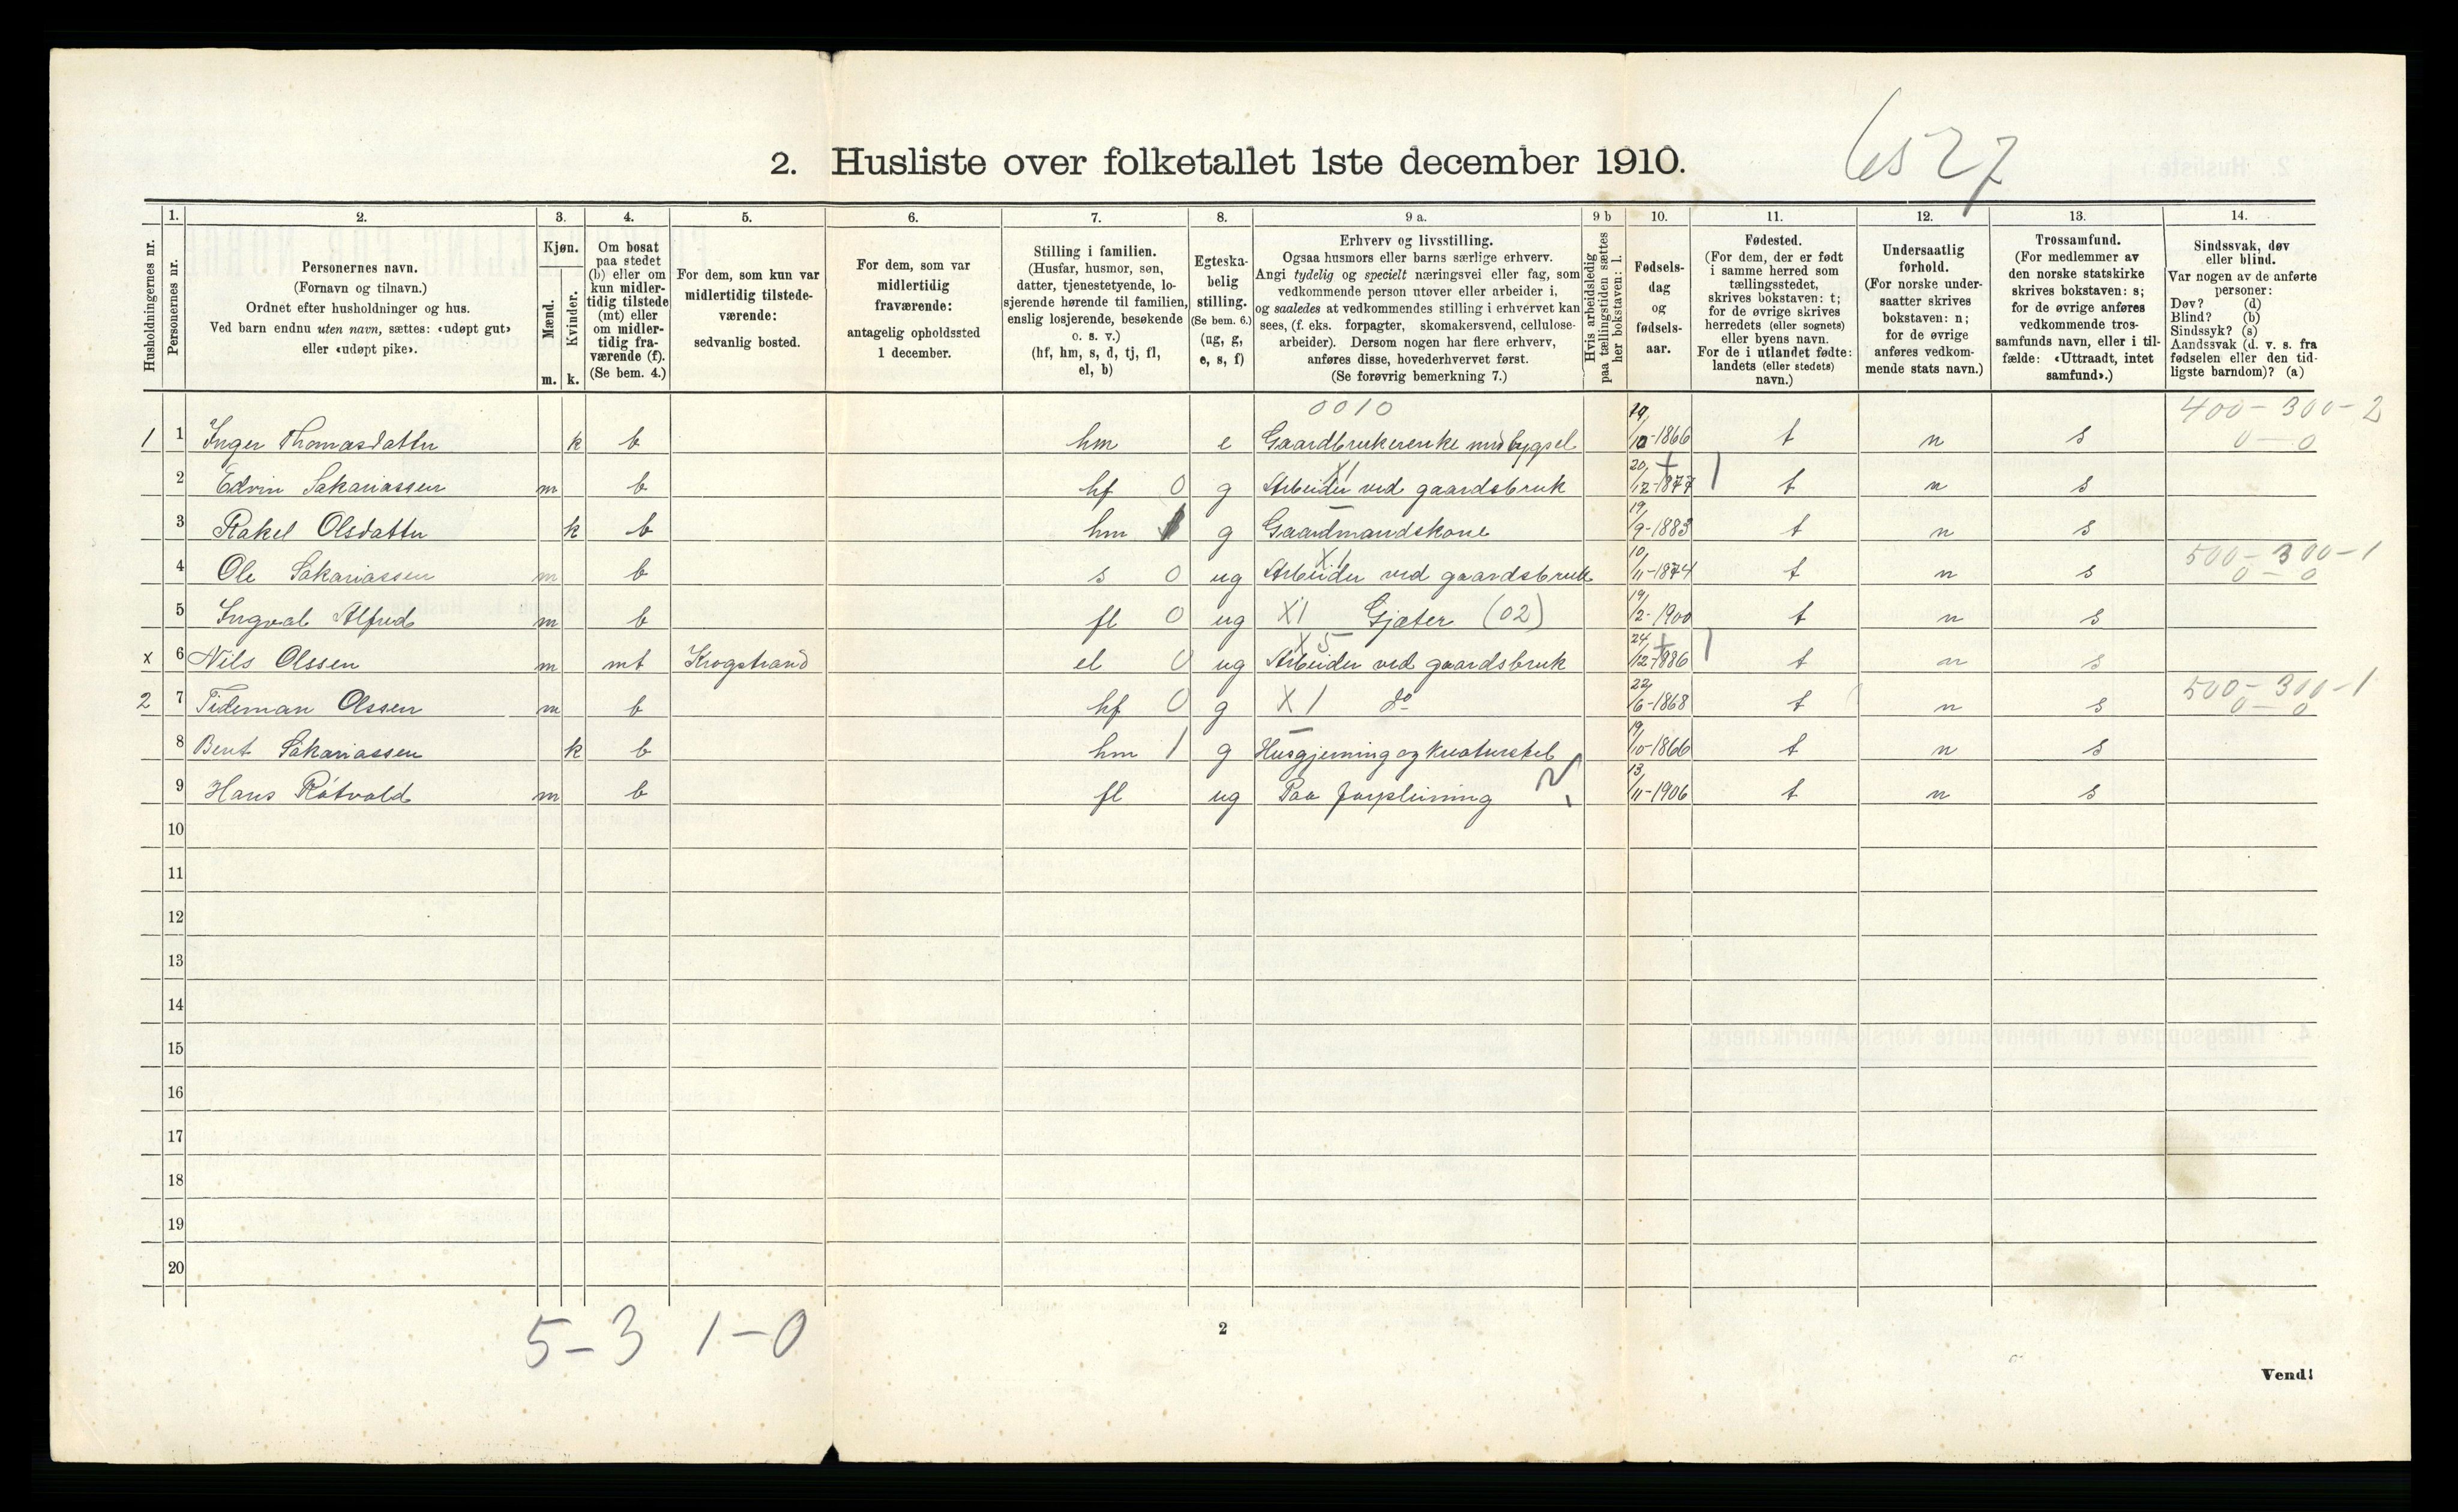 6527
2. Husliste over folketallet 1ste december 1910.
1. 2. 3. 4. 5. 6. 7. 8. 9 a. 9 b 10. 11. 12. 13. 14.
Husholdningernes nr.
Personernes nr.
Personernes navn.
(Fornavn og tilnavn.)
Ordnet efter husholdninger og hus.
Ved barn endnu uten navn, sættes: «udøpt gut»
eller «udøpt pike».
Kjøn.
Mænd.
Kvinder.
m. k.
Om bosat
paa stedet
(b) eller om
kun midler-
tidig tilstede
(mt) eller
om midler-
tidig fra-
værende (f).
(Se bem. 4.)
For dem, som kun var
midlertidig tilstede-
værende:
sedvanlig bosted.
For dem, som var
midlertidig
fraværende:
antagelig opholdssted
1 december.
Stilling i familien.
(Husfar, husmor, søn,
datter, tjenestetyende, lo-
sjerende hørende til familien,
enslig losjerende, besøkende
o. s. v.)
(hf, hm, s, d, tj, fl,
el, b)
Egteska-
belig
stilling.
(Se bem. 6.)
(ug, g,
e, s, f)
Erhverv og livsstilling.
Ogsaa husmors eller barns særlige erhverv.
Angi tydelig og specielt næringsvei eller fag, som
vedkommende person utøver eller arbeider i,
og saaledes at vedkommendes stilling i erhvervet kan
sees, (f. eks. forpagter, skomakersvend, cellulose-
arbeider). Dersom nogen har flere erhverv,
anføres disse, hovederhvervet først.
(Se forøvrig bemerkning 7.)
Hvis arbeidsledig
paa tællingstiden sættes
her bokstaven: l.
Fødsels-
dag
og
fødsels-
aar.
Fødested.
(For dem, der er født
i samme herred som
tællingsstedet,
skrives bokstaven: t;
for de øvrige skrives
herredets (eller sognets)
eller byens navn.
For de i utlandet fødte:
landets (eller stedets)
navn.)
Undersaatlig
forhold.
(For norske under-
saatter skrives
bokstaven: n;
for de øvrige
anføres vedkom-
mende stats navn.)
Trossamfund.
(For medlemmer av
den norske statskirke
skrives bokstaven: s;
for de øvrige anføres
vedkommende tros-
samfunds navn, eller i til-
fælde: «Uttraadt, intet
samfund».)
Sindssvak, døv
eller blind.
Var nogen av de anførte
personer:
Døv? (d)
Blind? (b)
Sindssyk? (s)
Aandssvak (d. v. s. fra
fødselen eller den tid-
ligste barndom)? (a)
0010 400-300-2
1 1 Inger Thomasdatter k b hm e Gaardbrukerenke med bygsel 19/10-1866 t n s 0-0
2 Edvin Sakariassen m b hf 0 g X1 Arbeider ved gaardsbruk 20/12-1877 t n s
3 Rakel Olsdatter k b hm 1 g Gaardmandskone 19/9-1883 t n s
4 Ole Sakariassen m b s 0 ug X1 Arbeider ved gaardsbruk 10/11-1874 t n s 500-300-1 0-0
5 Ingval Alfred m b fl 0 ug X1 Gjæter (02) 19/2-1900 t n s
x 6 Nils Olssen m mt Krogstrand el 0 ug X5 Arbeider ved gaardsbruk 24/12-1886 t n s
2 7 Tideman Olssen m b hf 0 g X1 do 22/6-1868 t n s 500-300-1 0-0
8 Berit Sakariassen k b hm 1 g Husgjerning og kreaturstel 19/10-1866 t n s
9 Hans Rotvold m b fl ug Paa forpleining 13/11-1906 t n s
10
11
12
13
14
15
16
17
18
19
20
5-3 1-0
2
Vend!